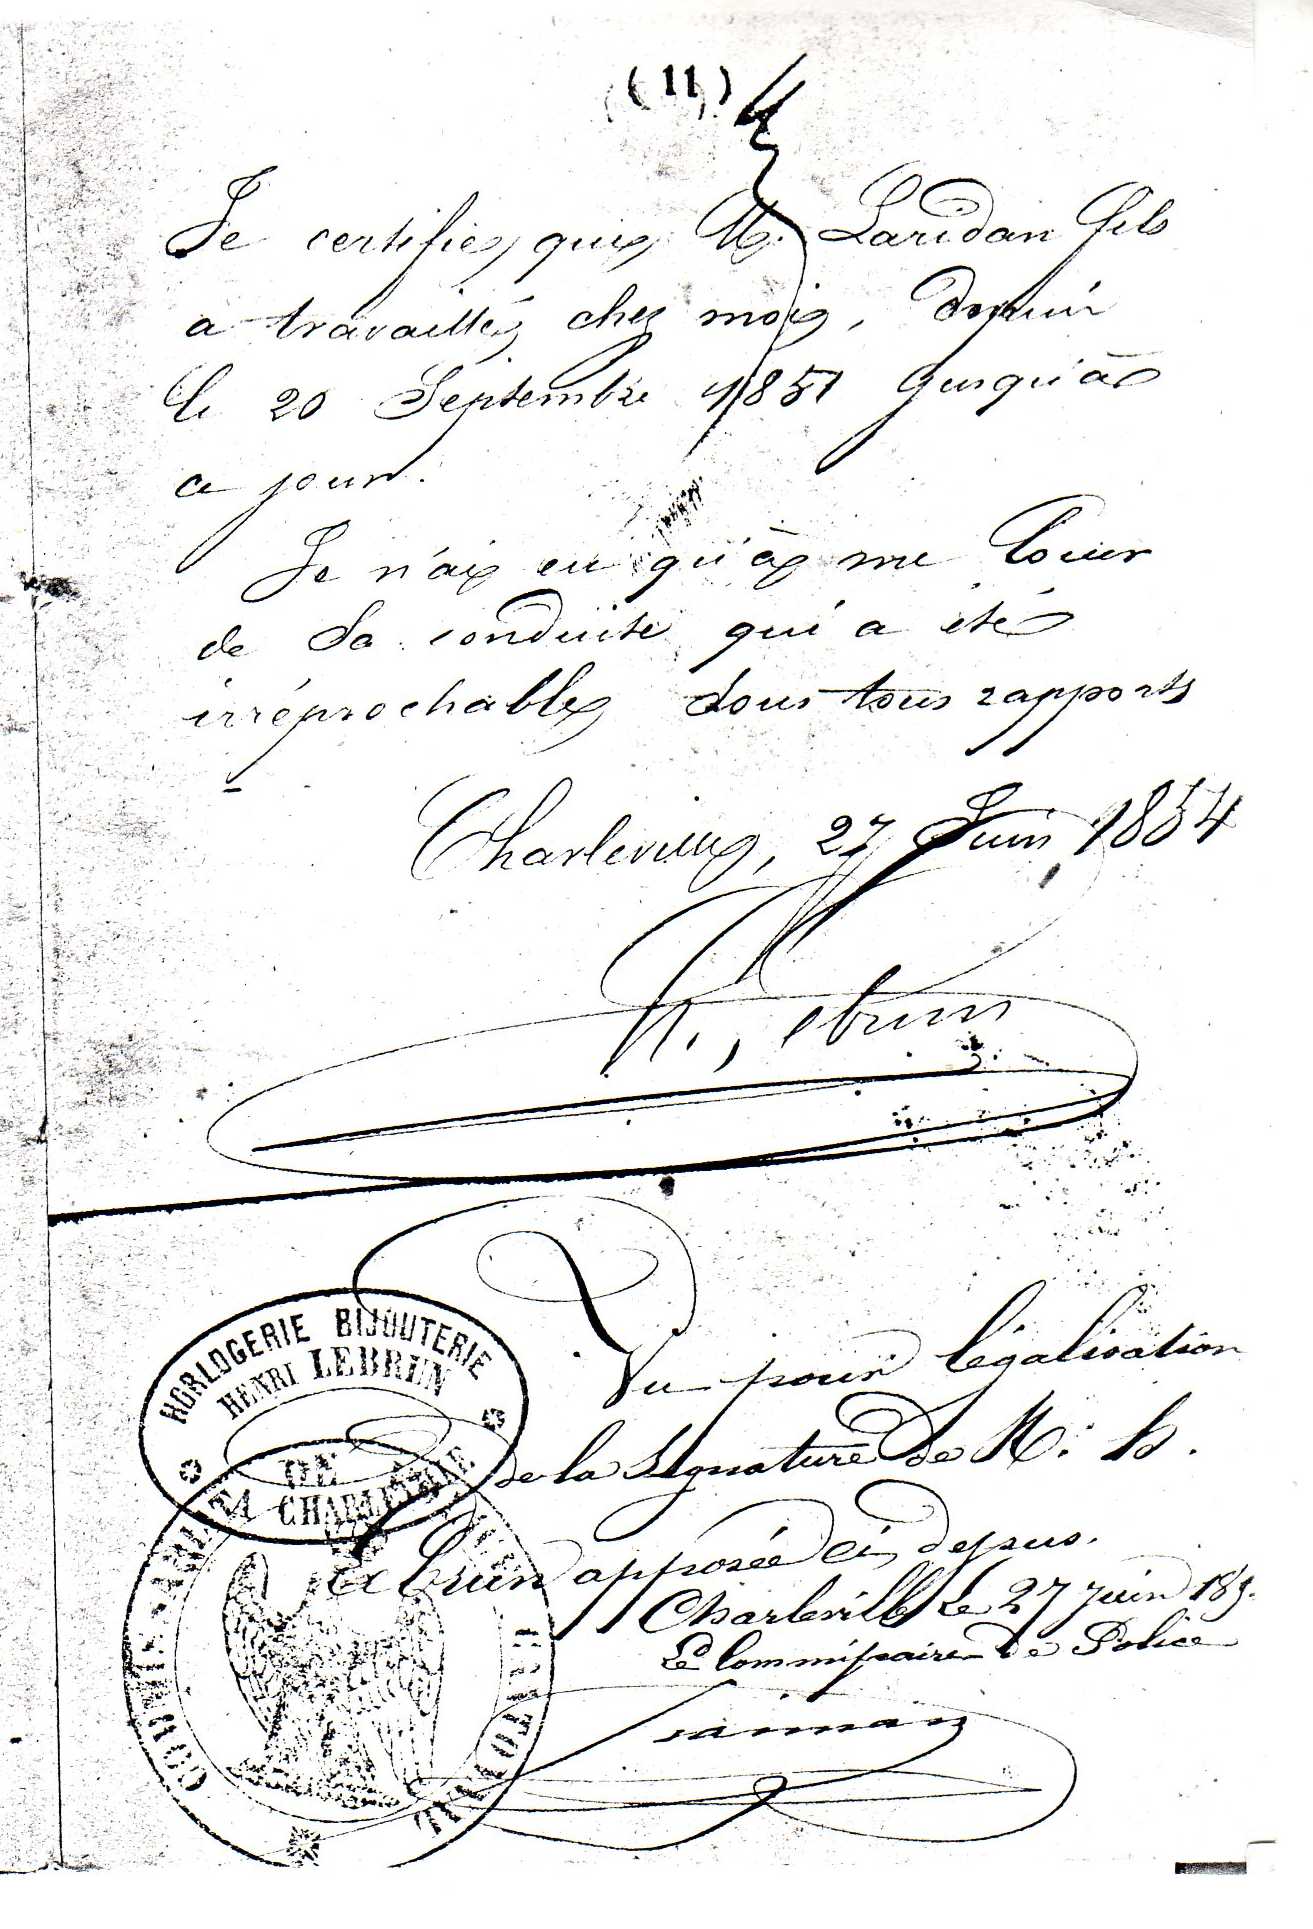 (11)
Je certifie que M. Laridan fils
a travaillé chez moi, depuis
le 20 Septembre 1851 jusqu'à
ce jour.
Je n'ai eu qu'à me louer
de sa conduite qui a été
irréprochable sous tous rapports
Charleville, 27 Juin 1854
H. Lebrun
HORLOGERIE BIJOUTERIE
HENRI LEBRUN
DE
CHARLEVILLE
Vu pour légalisation
de la signature de M. h.
Le brun apposée ci dessus.
Charleville le 27 juin 185
Le Commissaire de Police
COMMISSARIAT